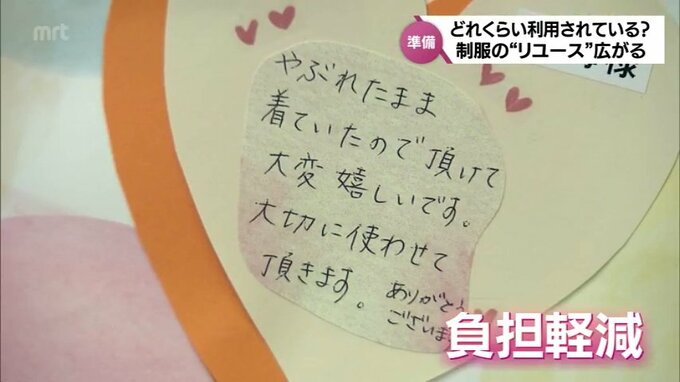 mrt
準備
どれくらい利用されている?
制服の“リユース”広がる
様
やぶれたまま
着ていたので頂けて
大変嬉しいです。
大切に使わせて
頂きます。
ありがとう
ございま
負担軽減